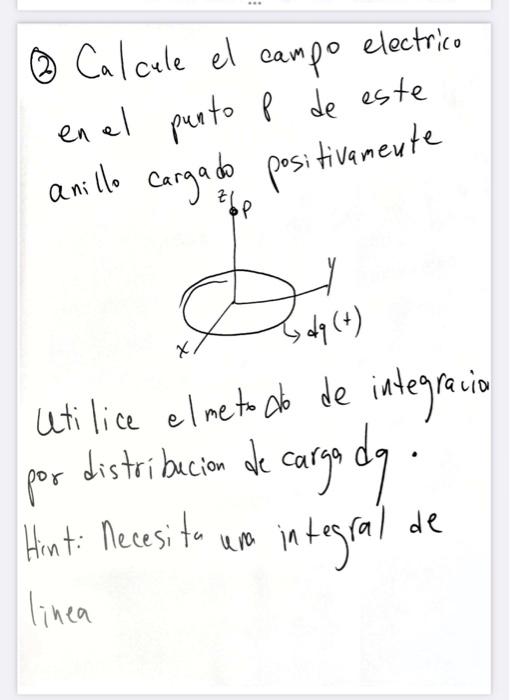 ② Calcule el campo electrico
en el punto P de este
anillo cargado positivamente
z
P
y
dq (+)
x
Utilice el metodo de integracion
por distribucion de carga dq.
Hint: Necesita una integral de
linea